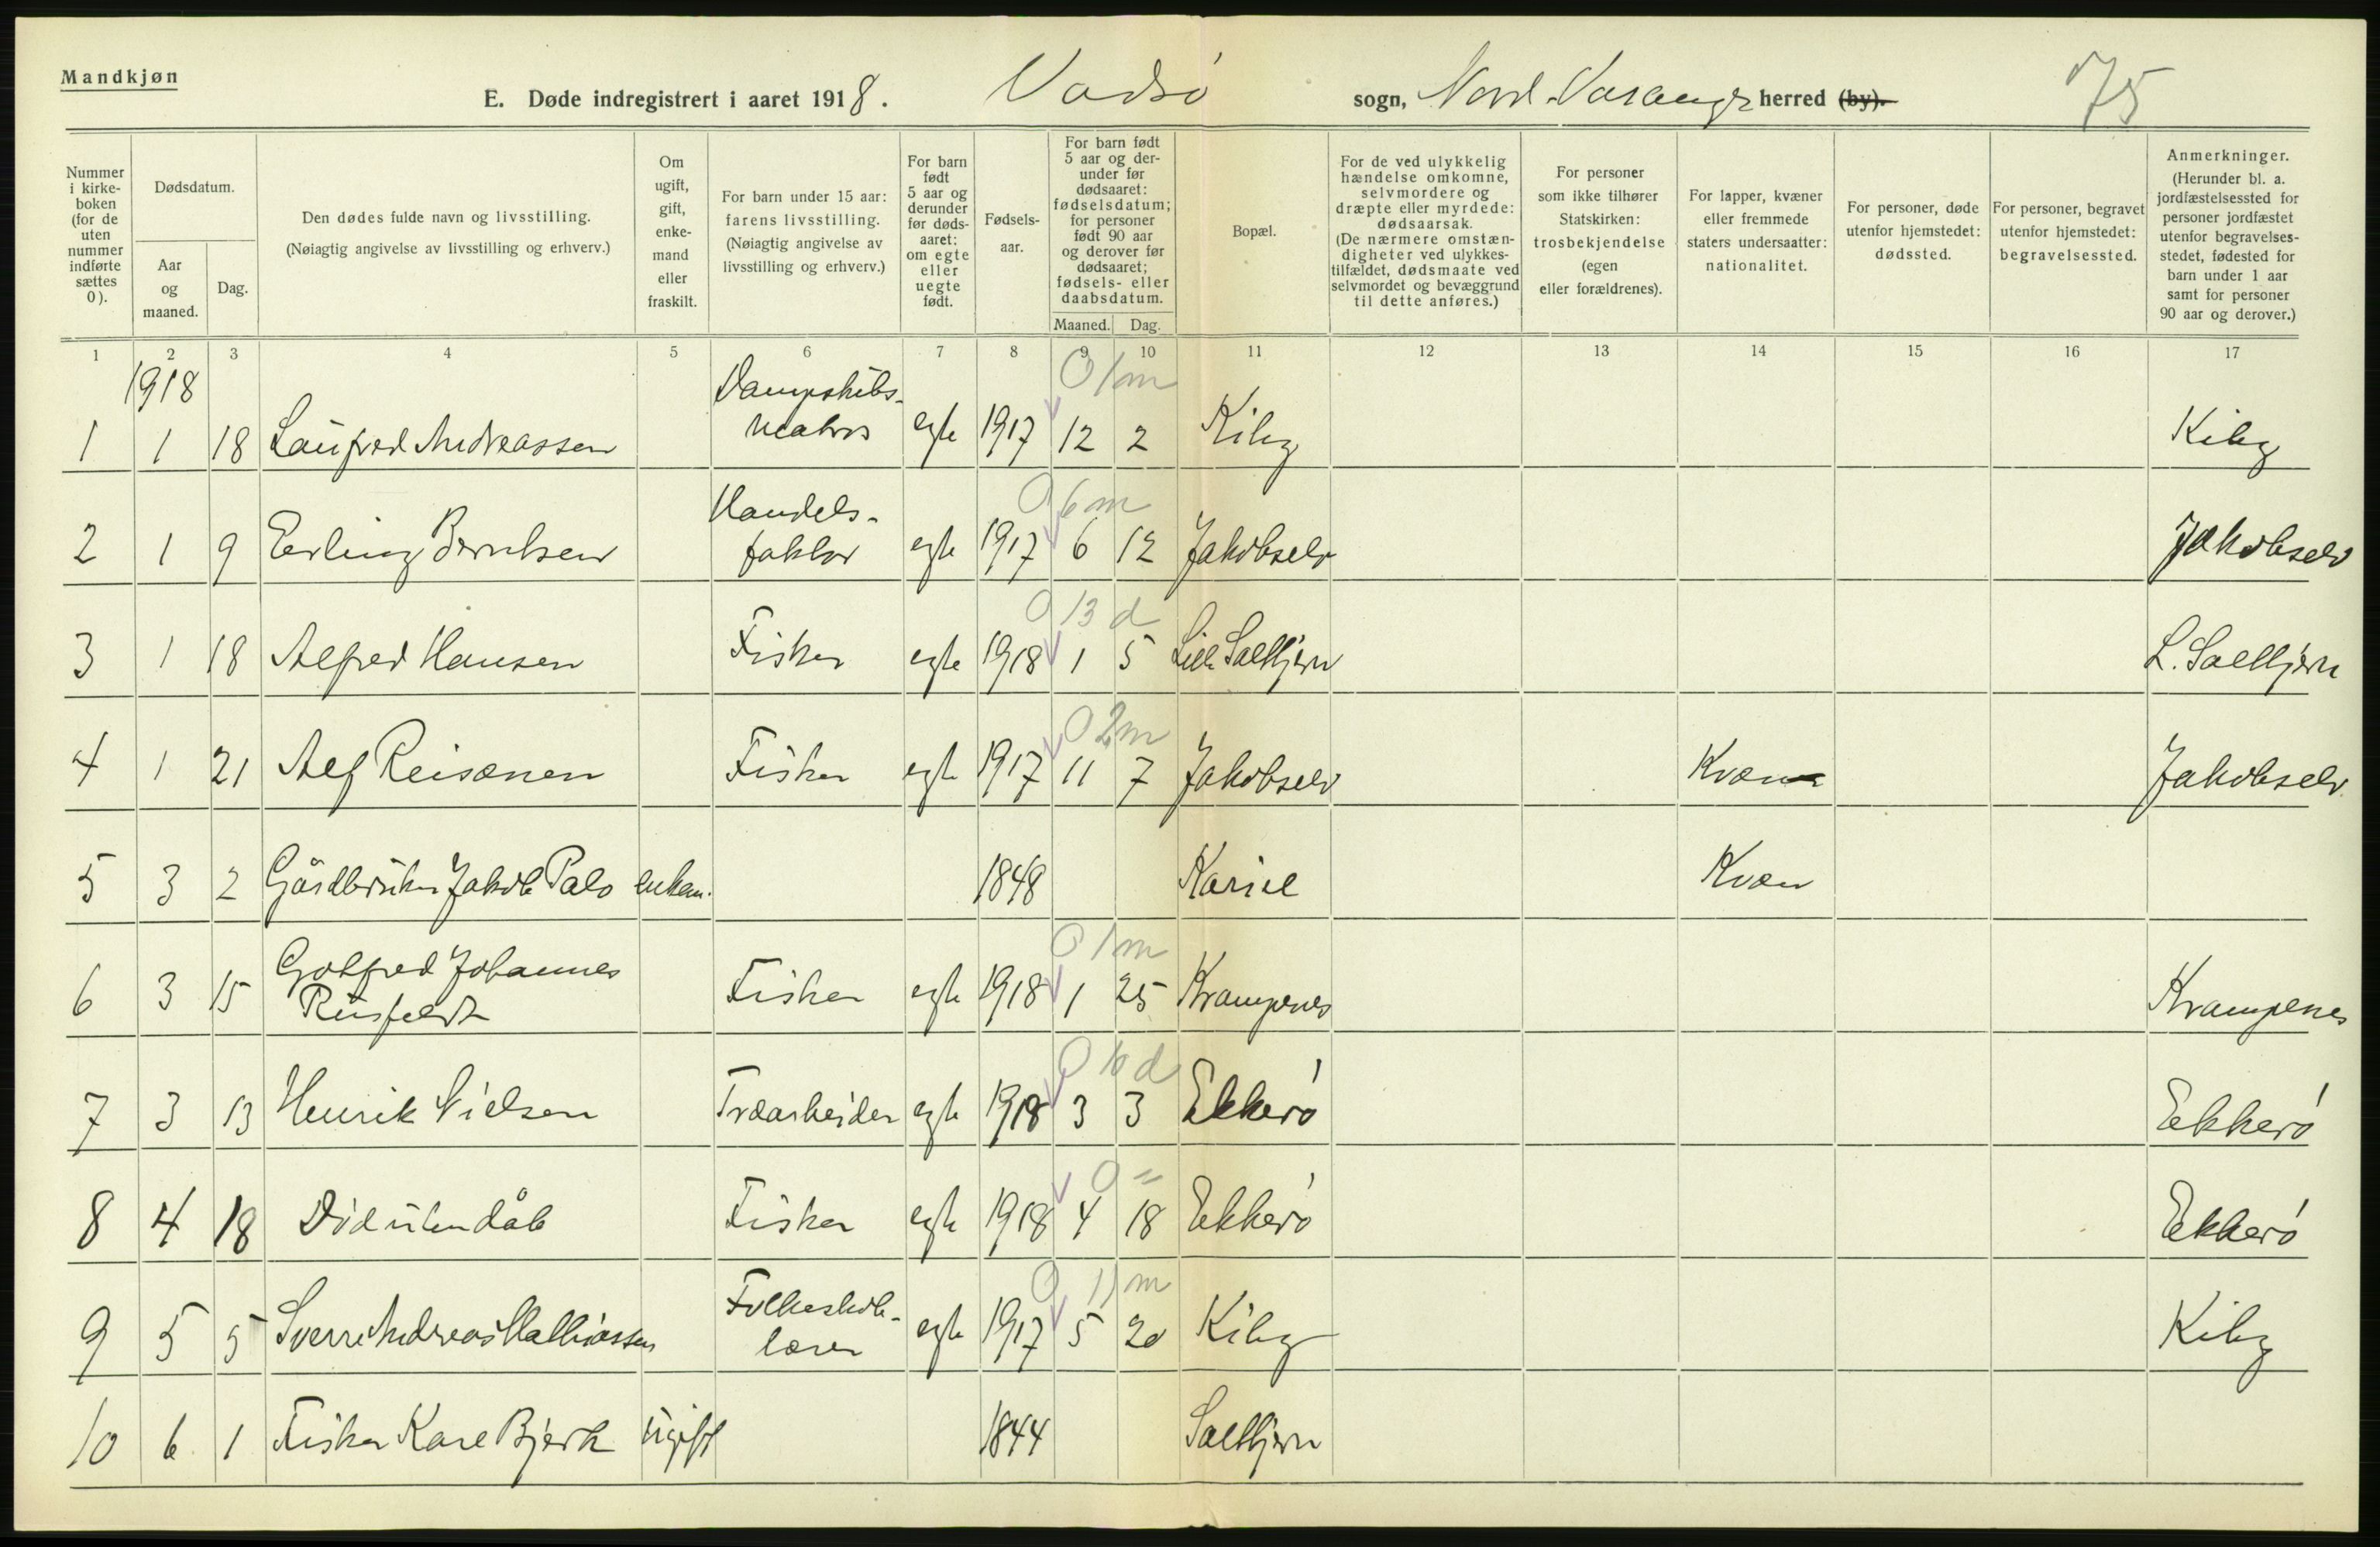 Mandkjøn
E. Døde indregistrert i aaret 1918. Vadsø sogn, Nord-Varanger herred (by).
75
Nummer i kirke- boken (for de uten nummer indførte sættes 0).
Dødsdatum.
Aar og maaned.
Dag.
Den dødes fulde navn og livsstilling.
(Nøiagtig angivelse av livsstilling og erhverv.)
Om ugift, gift, enke- mand eller fraskilt.
For barn under 15 aar: farens livsstilling. (Nøiagtig angivelse av livsstilling og erhverv.)
For barn født 5 aar og derunder før døds- aaret: om egte eller uegte født.
Fødsels- aar.
For barn født 5 aar og der- under før dødsaaret: fødselsdatum; for personer født 90 aar og derover før dødsaaret; fødsels- eller daabsdatum.
Maaned. Dag.
Bopæl.
For de ved ulykkelig hændelse omkomne, selvmordere og dræpte eller myrdede: dødsaarsak. (De nærmere omstæn- digheter ved ulykkes- tilfældet, dødsmaate ved selvmordet og bevæggrund til dette anføres.)
For personer som ikke tilhører Statskirken: trosbekjendelse (egen eller forældrenes).
For lapper, kvæner eller fremmede staters undersaatter: nationalitet.
For personer, døde utenfor hjemstedet: dødssted.
For personer, begravet utenfor hjemstedet: begravelsessted.
Anmerkninger. (Herunder bl. a. jordfæstelsessted for personer jordfæstet utenfor begravelses- stedet, fødested for barn under 1 aar samt for personer 90 aar og derover.)
1 2 3 4 5 6 7 8 9 10 11 12 13 14 15 16 17
1918 Dampskibs- 0 1m
1 1 18 Laufred Andreassen matros egte 1917 12 2 Kiby Kiby
Handels- 0 6m
2 1 9 Erling Berntsen faktor egte 1917 6 12 Jakobselv Jakobselv
0 13 d
3 1 18 Alfred Hansen Fisker egte 1918 1 5 Lille Salttjern L. Salttjern
0 2m
4 1 21 Alf Reisænen Fisker egte 1917 11 7 Jakobselv Kvæn Jakobselv
5 3 2 Gårdbruker Jakob Palo enkem. 1848 Kariel Kvæn
Gotfred Johannes 0 1m
6 3 15 Rusfeldt Fisker egte 1918 1 25 Krampenes Krampenes
0 10 d
7 3 13 Henrik Nielsen Træarbeider egte 1918 3 3 Ekkerø Ekkerø
0 =
8 4 18 Død uten dåb Fisker egte 1918 4 18 Ekkerø Ekkerø
Folkeskole- 0 11 m
9 5 5 Sverre Andreas Mathiassen lærer egte 1917 5 20 Kiby Kiby
10 6 1 Fisker Karl Bjerk ugift 1844 Salttjern